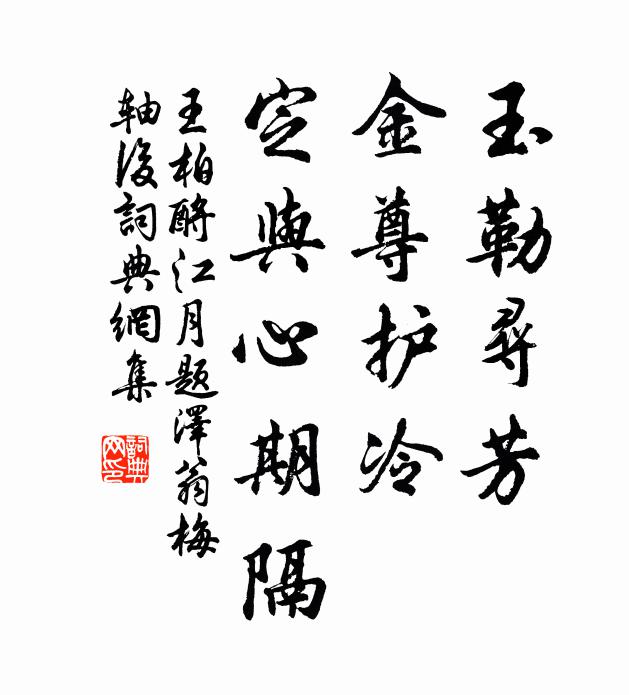 玉勒尋芳
金尊护冷
定與心期隔
王柏酹江月題澤翁梅
軸後詞典網集
詞典网印